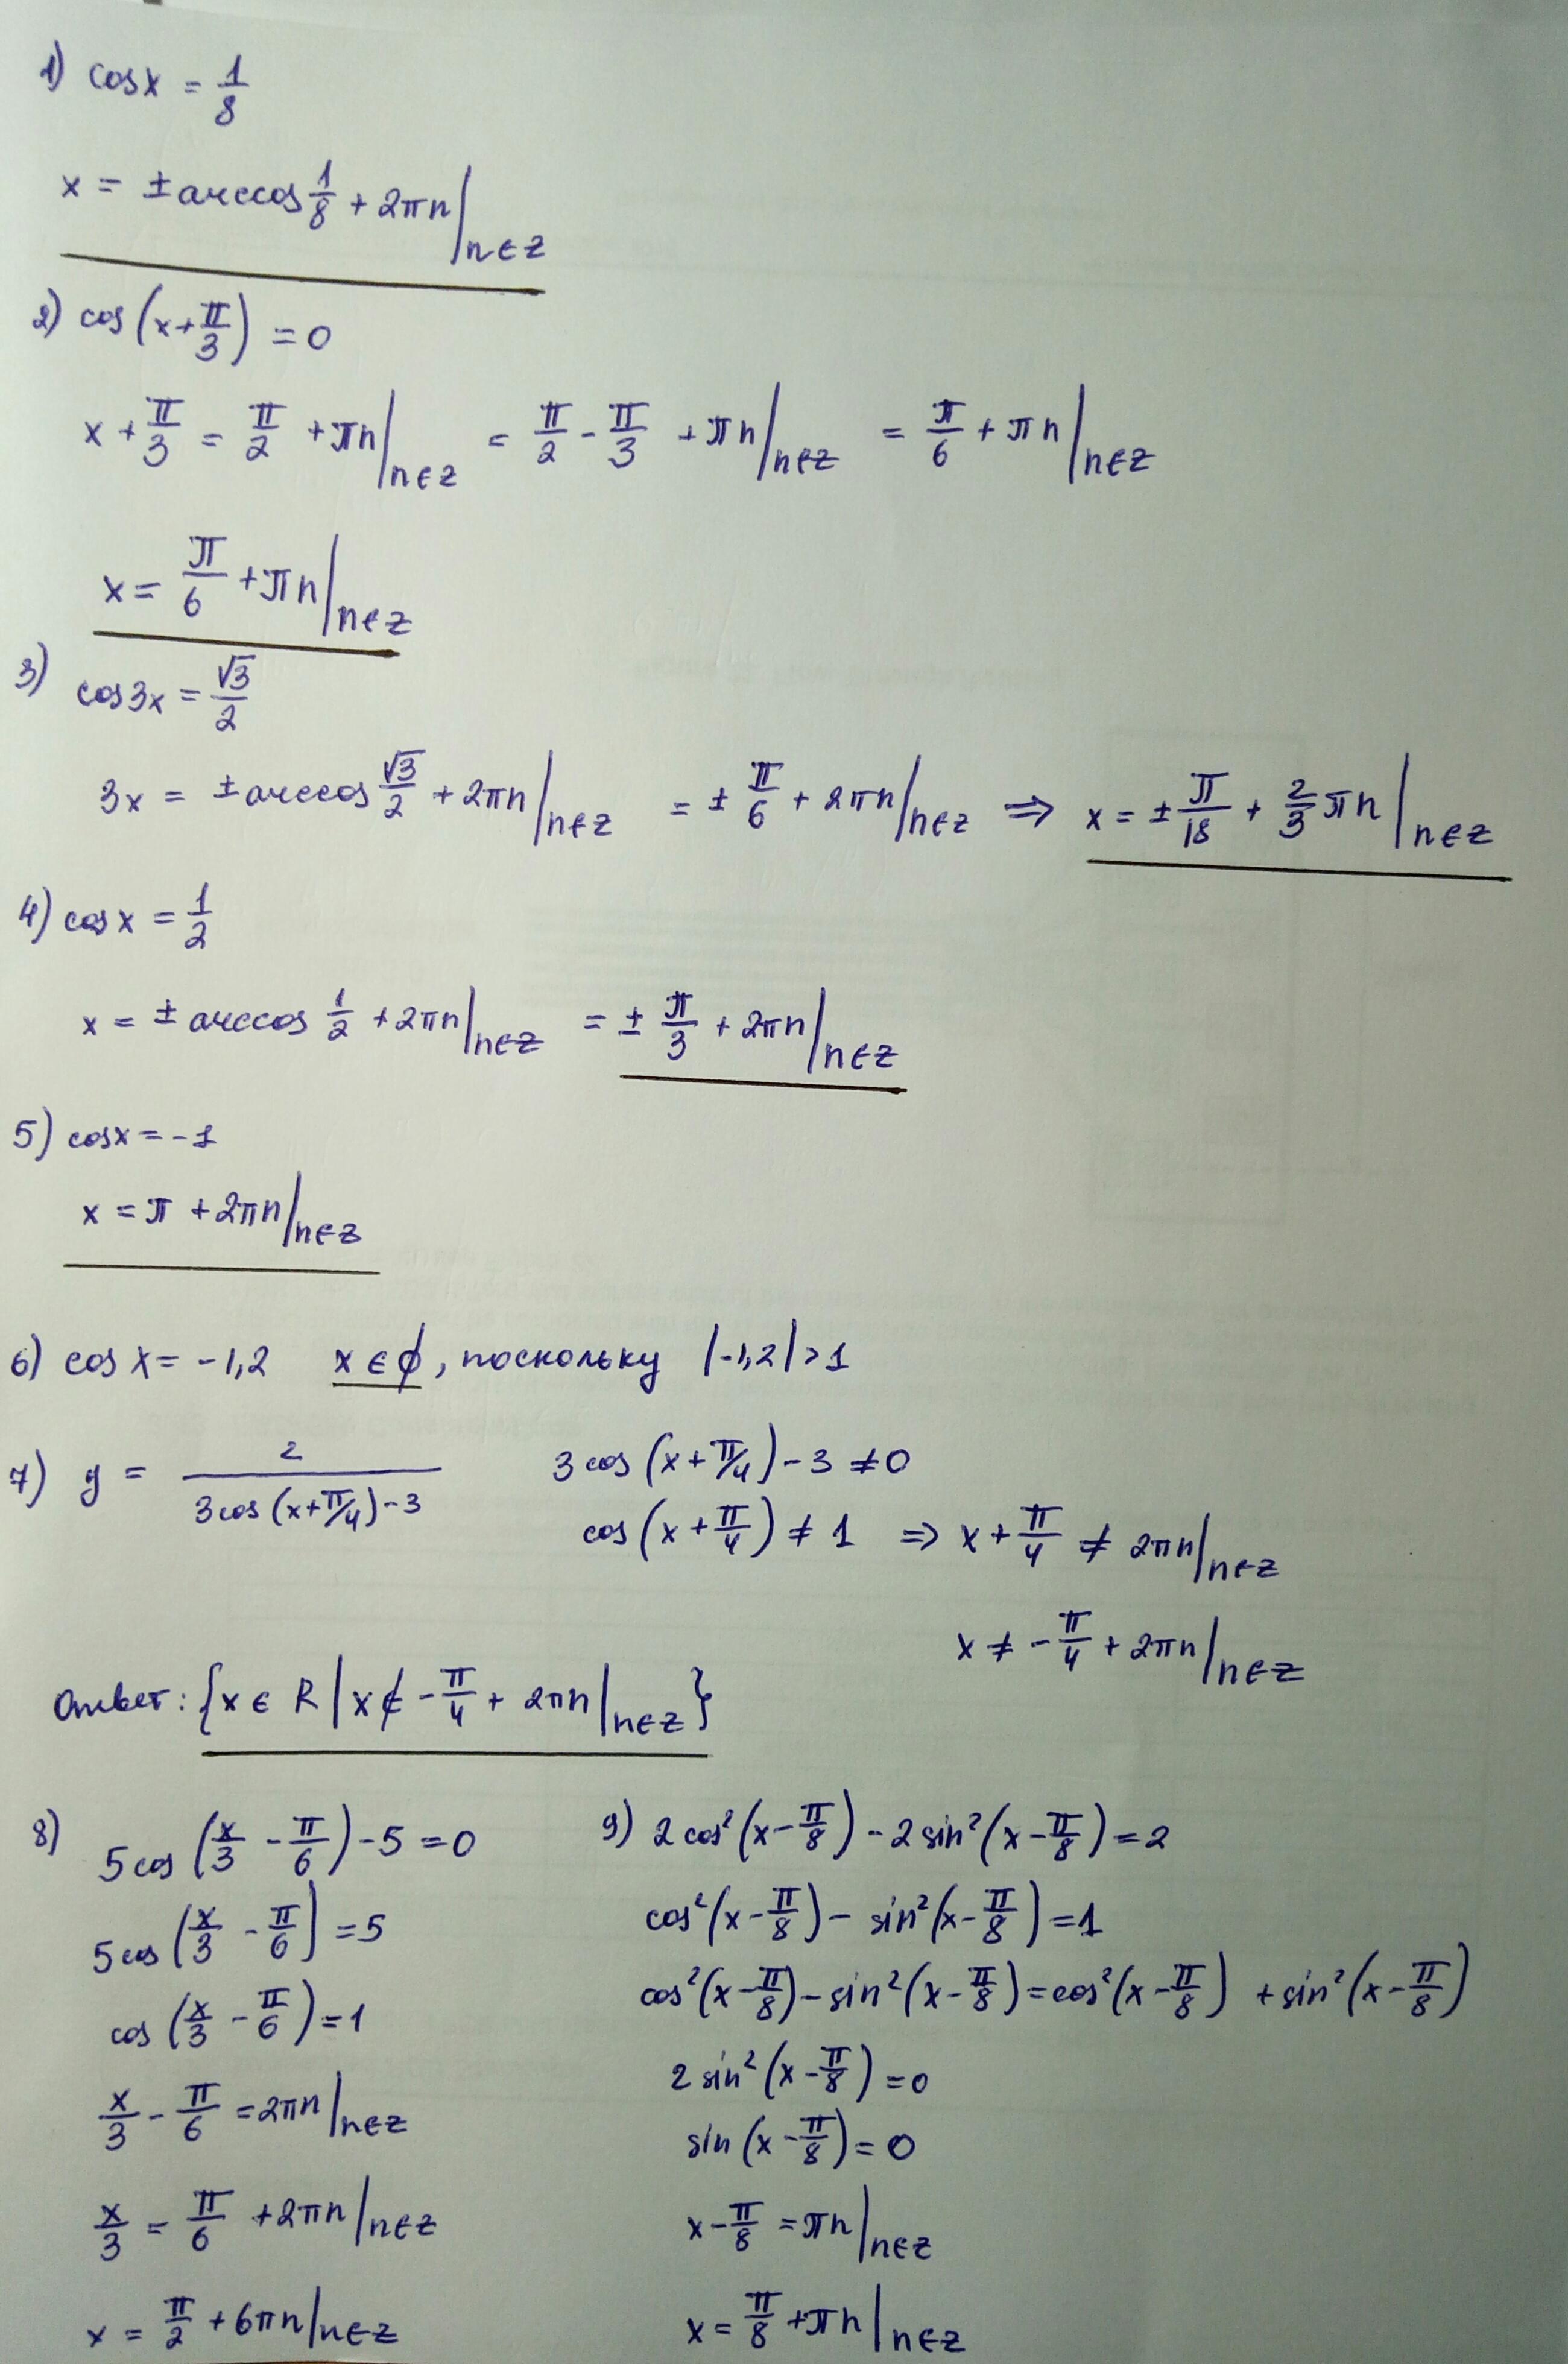 1) cos x = 1/8
x = ± arccos 1/8 + 2πn |n∈Z
2) cos (x + π/3) = 0
x + π/3 = π/2 + πn |n∈Z = π/2 - π/3 + πn |n∈Z = π/6 + πn |n∈Z
x = π/6 + πn |n∈Z
3) cos 3x = √3/2
3x = ± arccos √3/2 + 2πn |n∈Z = ± π/6 + 2πn |n∈Z ⇒ x = ± π/18 + 2/3 πn |n∈Z
4) cos x = 1/2
x = ± arccos 1/2 + 2πn |n∈Z = ± π/3 + 2πn |n∈Z
5) cos x = -1
x = π + 2πn |n∈Z
6) cos x = -1,2 x ∈ ∅, поскольку |-1,2| > 1
7) y = 2/(3 cos (x + π/4) - 3)
3 cos (x + π/4) - 3 ≠ 0
cos (x + π/4) ≠ 1 ⇒ x + π/4 ≠ 2πn |n∈Z
x ≠ - π/4 + 2πn |n∈Z
Ответ: {x ∈ R | x ∉ - π/4 + 2πn |n∈Z}
8) 5 cos (x/3 - π/6) - 5 = 0
5 cos (x/3 - π/6) = 5
cos (x/3 - π/6) = 1
x/3 - π/6 = 2πn |n∈Z
x/3 = π/6 + 2πn |n∈Z
x = π/2 + 6πn |n∈Z
9) 2 cos² (x - π/8) - 2 sin² (x - π/8) = 2
cos² (x - π/8) - sin² (x - π/8) = 1
cos² (x - π/8) - sin² (x - π/8) = cos² (x - π/8) + sin² (x - π/8)
2 sin² (x - π/8) = 0
sin (x - π/8) = 0
x - π/8 = πn |n∈Z
x = π/8 + πn |n∈Z